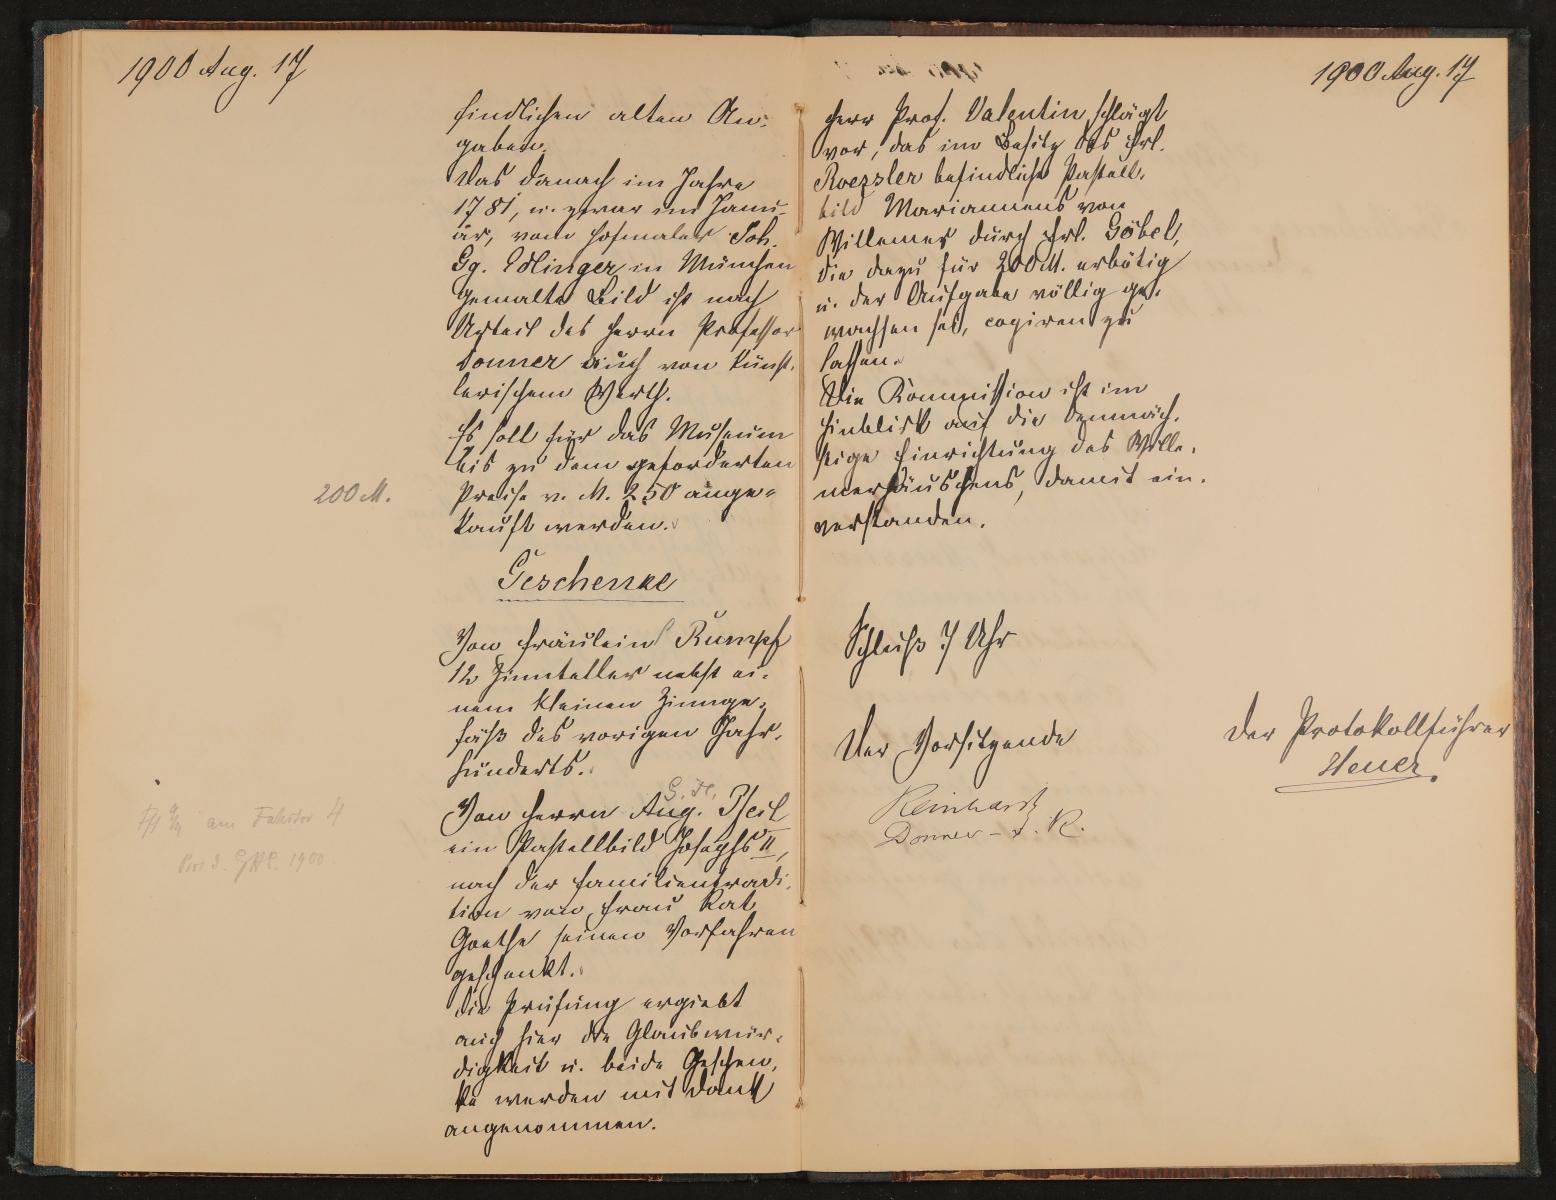 1900 Aug. 17
findlichen alten An-
gaben.
Das danach im Jahre
1781, u. zwar im Janu-
ar, vom Hofmaler Joh.
Gg. Edlinger in München
gemalte Bild ist nach
Urteil des Herrn Professor
Donner auch von künst-
lerischem Werth.
Es soll für das Museum
bis zu dem geforderten
200 M.
Preise v. M. 250 ange-
kauft werden.
Geschenke
Von Fräulein Rumpf
12 Zinnteller nebst ei-
nem kleinen Zinnge-
fäß des vorigen Jahr-
hunderts.
G. H.
Von Herrn Aug. Pfeil
am Fahrtor 4
ein Pastellbild Josephs II,
1900.
nach der Familientradi-
tion von Frau Rat
Goethe seinen Vorfahren
geschenkt.
Die Prüfung ergiebt
auch hier die Glaubwür-
digkeit u. beide Geschen-
ke werden mit Dank
angenommen.
1900 Aug. 17
Herr Prof. Valentin schlägt
vor, das im Besitz des Frl.
Roessler befindliche Pastell-
bild Mariannens von
Willemer durch Frl. Göbel,
die dazu für 200 M. erbötig
u. der Aufgabe völlig ge-
wachsen sei, copiren zu
lassen.
Die Kommission ist im
Hinblick auf die demnäch-
stige Einrichtung des Wille-
merhäuschens, damit ein-
verstanden.
Schluß 7 Uhr
Der Vorsitzende
Reinhardt
Donner - v. R.
Der Protokollführer
Heuer.